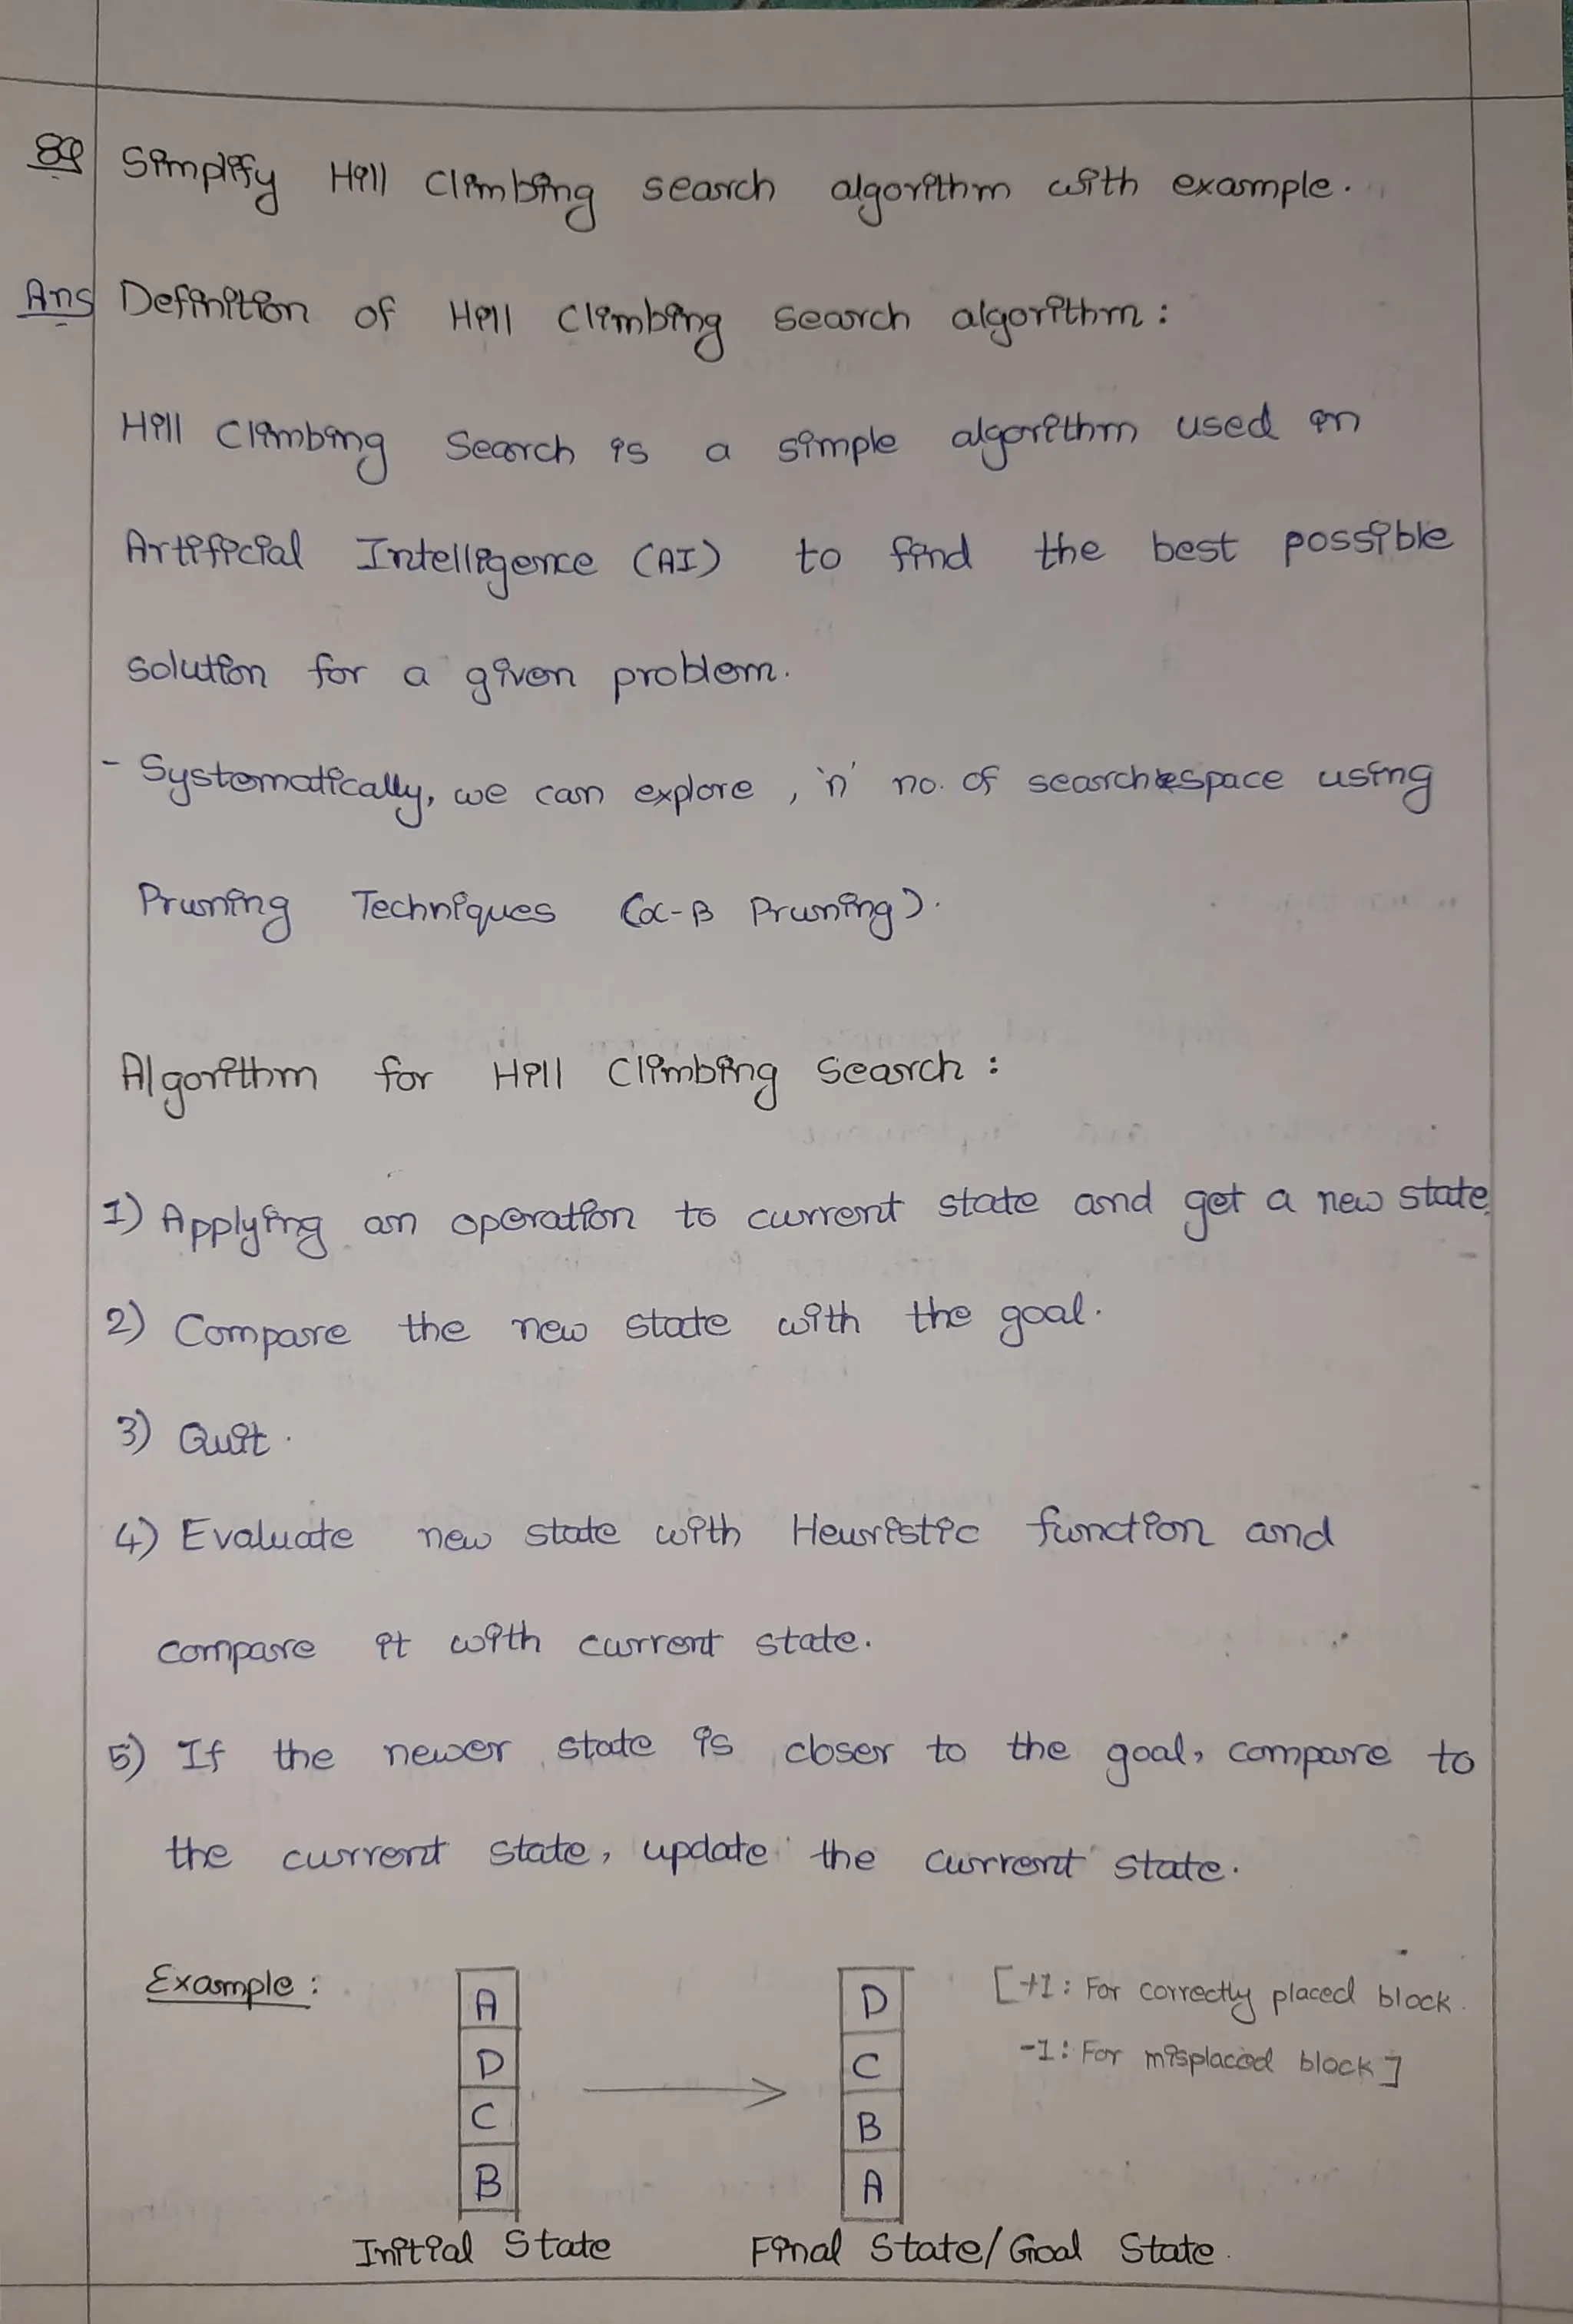 8Q Simplify Hill Climbing search algorithm with example.
Ans Definition of Hill Climbing search algorithm:
Hill Climbing Search is a simple algorithm used in
Artificial Intelligence (AI) to find the best possible
solution for a given problem.
- Systematically, we can explore, 'n' no. of search space using
Pruning Techniques (α-β Pruning).
Algorithm for Hill Climbing Search:
1) Applying an operation to current state and get a new state.
2) Compare the new state with the goal.
3) Quit.
4) Evaluate new state with Heuristic function and
compare it with current state.
5) If the newer state is closer to the goal, compare to
the current state, update the current state.
Example:
[+1: For correctly placed block.
-1: For misplaced block]
A
D
C
B
Initial State
D
C
B
A
Final State/Goal State.